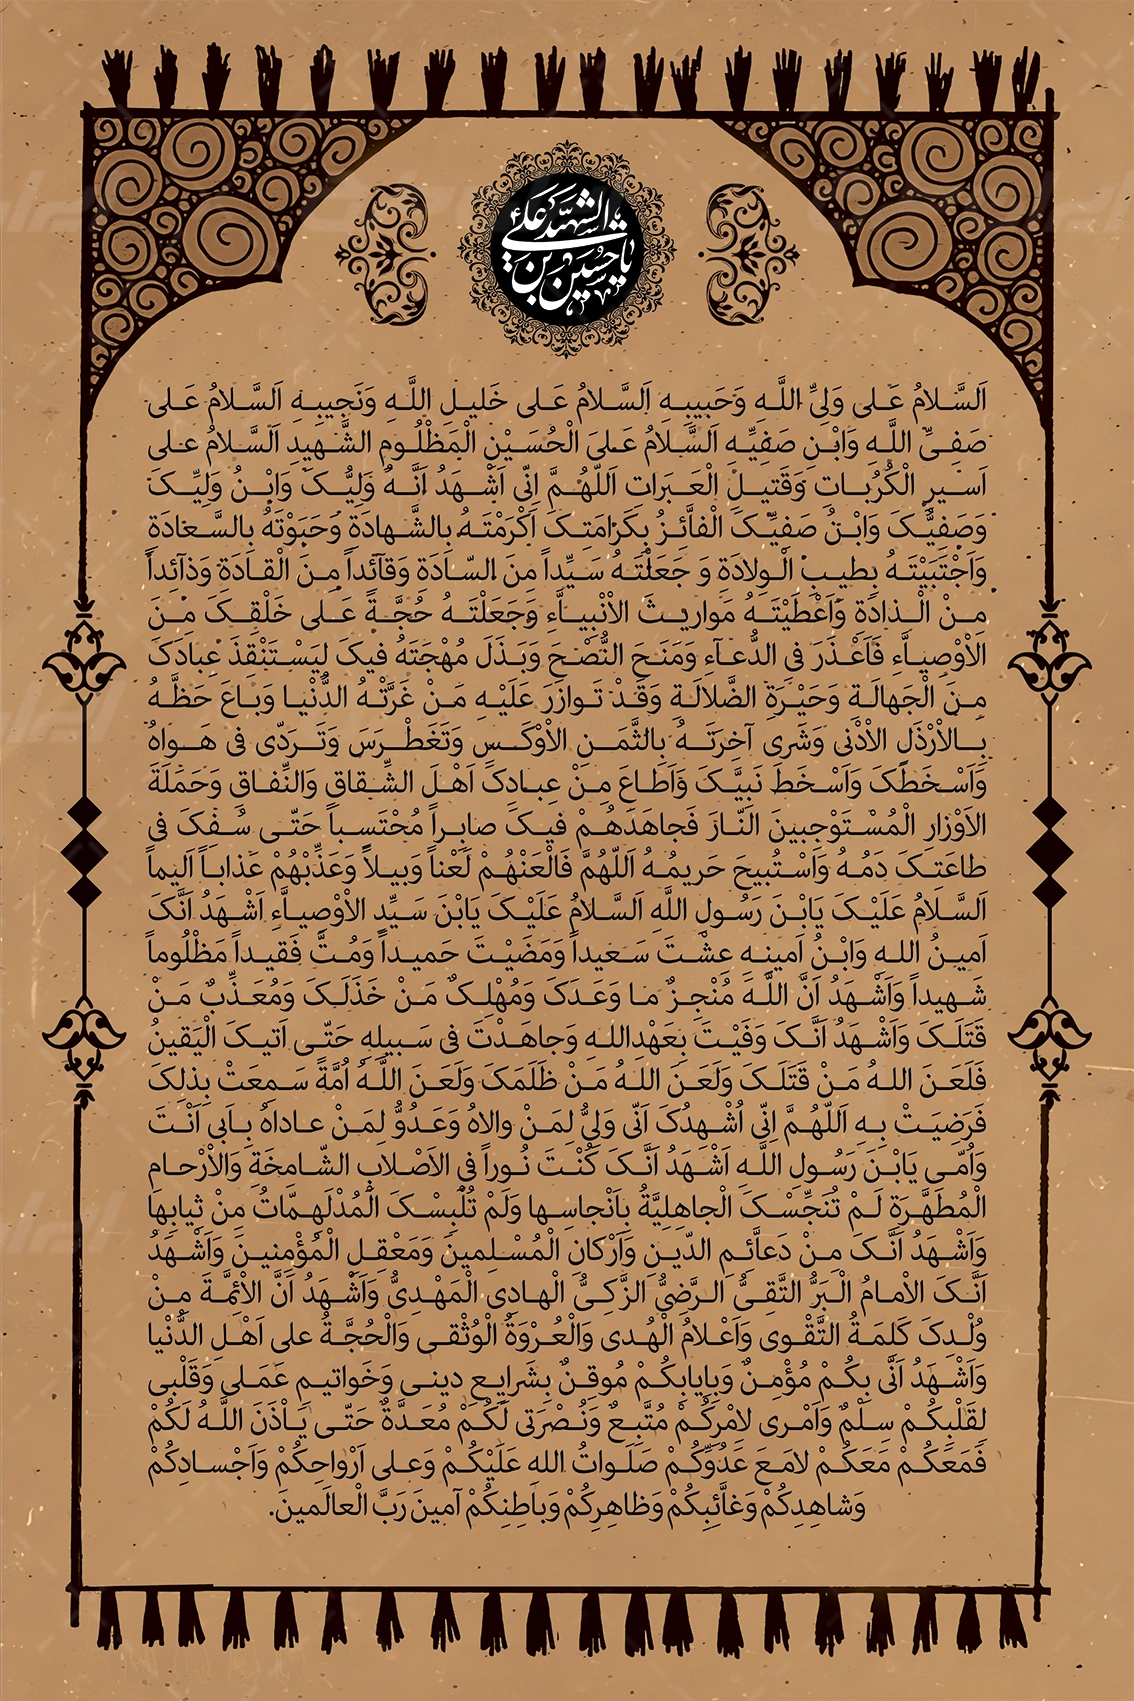 یا حسین بن علی الشهید
اَلسَّلامُ عَلی وَلِیِّ اللَّهِ وَحَبیبِهِ اَلسَّلامُ عَلی خَلیلِ اللَّهِ وَنَجیبِهِ اَلسَّلامُ عَلی
صَفِیِّ اللَّهِ وَابْنِ صَفِیِّهِ اَلسَّلامُ عَلیَ الْحُسَیْنِ الْمَظْلُومِ الشَّهیدِ اَلسَّلامُ علی
اَسیرِ الْکُرُباتِ وَقَتیلِ الْعَبَراتِ اَللّهُمَّ اِنّی اَشْهَدُ اَنَّهُ وَلِیُّکَ وَابْنُ وَلِیِّکَ
وَصَفِیُّکَ وَابْنُ صَفِیِّکَ الْفاَّئِزُ بِکَرامَتِکَ اَکْرَمْتَهُ بِالشَّهادَةِ وَحَبَوْتَهُ بِالسَّعادَةِ
وَاَجْتَبَیْتَهُ بِطیبِ الْوِلادَةِ وَ جَعَلْتَهُ سَیِّداً مِنَ السّادَةِ وَقآئِداً مِنَ الْقادَةِ وَذآئِداً
مِنْ الْذادَةِ وَاَعْطَیْتَهُ مَواریثَ الاْنْبِیاَّءِ وَجَعَلْتَهُ حُجَّةً عَلی خَلْقِکَ مِنَ
الاْوْصِیاَّءِ فَاَعْذَرَ فیِ الدُّعآءِ وَمَنَحَ النُّصْحَ وَبَذَلَ مُهْجَتَهُ فیکَ لِیَسْتَنْقِذَ عِبادَکَ
مِنَ الْجَهالَةِ وَحَیْرَةِ الضَّلالَةِ وَقَدْ تَوازَرَ عَلَیْهِ مَنْ غَرَّتْهُ الدُّنْیا وَباعَ حَظَّهُ
بِالاْرْذَلِ الاْدْنی وَشَری آخِرَتَهُ بِالثَّمَنِ الاْوْکَسِ وَتَغَطْرَسَ وَتَرَدّی فی هَواهُ
وَاَسْخَطَکَ وَاَسْخَطَ نَبِیَّکَ وَاَطاعَ مِنْ عِبادِکَ اَهْلَ الشِّقاقِ وَالنِّفاقِ وَحَمَلَةَ
الاْوْزارِ الْمُسْتَوْجِبینَ النّارَ فَجاهَدَهُمْ فیکَ صابِراً مُحْتَسِباً حَتّی سُفِکَ فی
طاعَتِکَ دَمُهُ وَاَسْتُبیحَ حَریمُهُ اَللّهُمَّ فَالْعَنْهُمْ لَعْناً وَبیلاً وَعَذِّبْهُمْ عَذاباً اَلیماً
اَلسَّلامُ عَلَیْکَ یَابْنَ رَسُولِ اللَّهِ اَلسَّلامُ عَلَیْکَ یَابْنَ سَیِّدِ الاْوْصِیاَّءِ اَشْهَدُ اَنَّکَ
اَمینُ اللهِ وَابْنُ اَمینِهِ عِشْتَ سَعیداً وَمَضَیْتَ حَمیداً وَمُتَّ فَقیداً مَظْلُوماً
شَهیداً وَاَشْهَدُ اَنَّ اللَّهَ مُنْجِزٌ ما وَعَدَکَ وَمُهْلِکٌ مَنْ خَذَلَکَ وَمُعَذِّبٌ مَنْ
قَتَلَکَ وَاَشْهَدُ اَنَّکَ وَفَیْتَ بِعَهْدِاللهِ وَجاهَدْتَ فی سَبیلِهِ حَتّی اَتیکَ الْیَقینُ
فَلَعَنَ اللهُ مَنْ قَتَلَکَ وَلَعَنَ اللهُ مَنْ ظَلَمَکَ وَلَعَنَ اللَّهُ اُمَّةً سَمِعَتْ بِذلِکَ
فَرَضِیَتْ بِهِ اَللّهُمَّ اِنّی اُشْهِدُکَ اَنّی وَلِیٌّ لِمَنْ والاهُ وَعَدُوٌّ لِمَنْ عاداهُ بِاَبی اَنْتَ
وَاُمّی یَابْنَ رَسُولِ اللَّهِ اَشْهَدُ اَنَّکَ کُنْتَ نُوراً فیِ الاْصْلابِ الشّامِخَةِ وَالاْرْحامِ
الْمُطَهَّرَةِ لَمْ تُنَجِّسْکَ الْجاهِلِیَّةُ بِاَنْجاسِها وَلَمْ تُلْبِسْکَ الْمُدْلَهِمّاتُ مِنْ ثِیابِها
وَاَشْهَدُ اَنَّکَ مِنْ دَعاَّئِمِ الدّینِ وَاَرْکانِ الْمُسْلِمینَ وَمَعْقِلِ الْمُؤْمِنینَ وَاَشْهَدُ
اَنَّکَ الاْمامُ الْبَرُّ التَّقِیُّ الرَّضِیُّ الزَّکِیُّ الْهادِی الْمَهْدِیُّ وَاَشْهَدُ اَنَّ الاْئِمَّةَ مِنْ
وُلْدِکَ کَلِمَةُ التَّقْوی وَاَعْلامُ الْهُدی وَالْعُرْوَةُ الْوُثْقی وَالْحُجَّةُ علی اَهْلِ الدُّنْیا
وَاَشْهَدُ اَنّی بِکُمْ مُؤْمِنٌ وَبِاِیابِکُمْ مُوقِنٌ بِشَرایِعِ دینی وَخَواتیمِ عَمَلی وَقَلْبی
لِقَلْبِکُمْ سِلْمٌ وَاَمْری لاِمْرِکُمْ مُتَّبِعٌ وَنُصْرَتی لَکُمْ مُعَدَّةٌ حَتّی یَاْذَنَ اللَّهُ لَکُمْ
فَمَعَکُمْ مَعَکُمْ لامَعَ عَدُوِّکُمْ صَلَواتُ اللهِ عَلَیْکُمْ وَعلی اَرْواحِکُمْ وَاَجْسادِکُمْ
وَشاهِدِکُمْ وَغاَّئِبِکُمْ وَظاهِرِکُمْ وَباطِنِکُمْ آمینَ رَبَّ الْعالَمینَ.